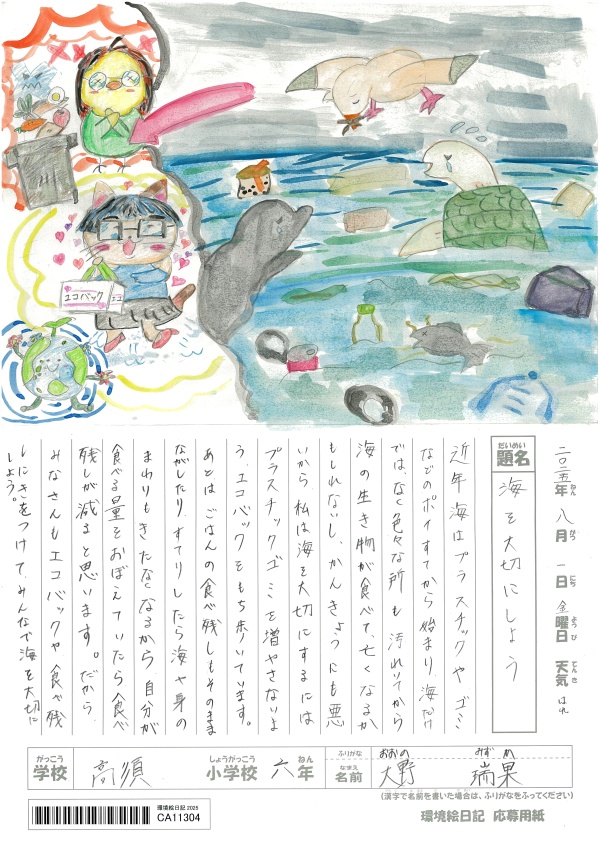 エコバック
エコ
二〇二五年 八月 一日 金曜日 天気 はれ
ねん がつ にち ようび てんき
だいめい
題名 海を大切にしよう
近年海はプラスチックやゴミ
などのポイすてから始まり、海だけ
では、なく色々な所も汚れてから
海の生き物が食べて、亡くなるか
もしれないし、かんきょうにも悪
いから私は海を大切にするには
プラスチックゴミを増やさないよ
う、エコバックをもち歩いています。
あとは、ごはんの食べ残しもそのまま
ながしたり、すてりしたら海や身の
まわりもきたなくなるから自分が
食べる量をおぼえていたら食べ
残しが減ると思います。だから、
みなさんもエコバックや食べ残
しにきをつけて、みんなで海を大切に
しよう。
がっこう しょうがっこう ねん ふりがな おおの みずか
学校 高須 小学校 六年 なまえ 名前 大野 瑞果
(漢字で名前を書いた場合は、ふりがなをふってください)
環境絵日記 2025
CA11304
環境絵日記 応募用紙